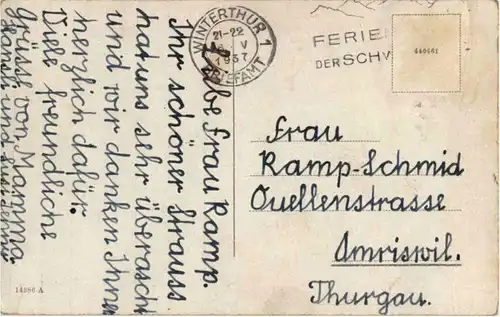 Liebe Frau Ramp.
Ihr schöner Strauss
hat uns sehr überascht
und wir danken Ihnen
herzlich dafür.
Viele freundliche
Grüsse von Mamma
WINTERTHUR 1
21-22
V
1937
BRIEFAMT
FERIE
DER SCHW
440461
Frau
Ramp-Schmid
Quellenstrasse
Amriswil.
Thurgau.
14386 A